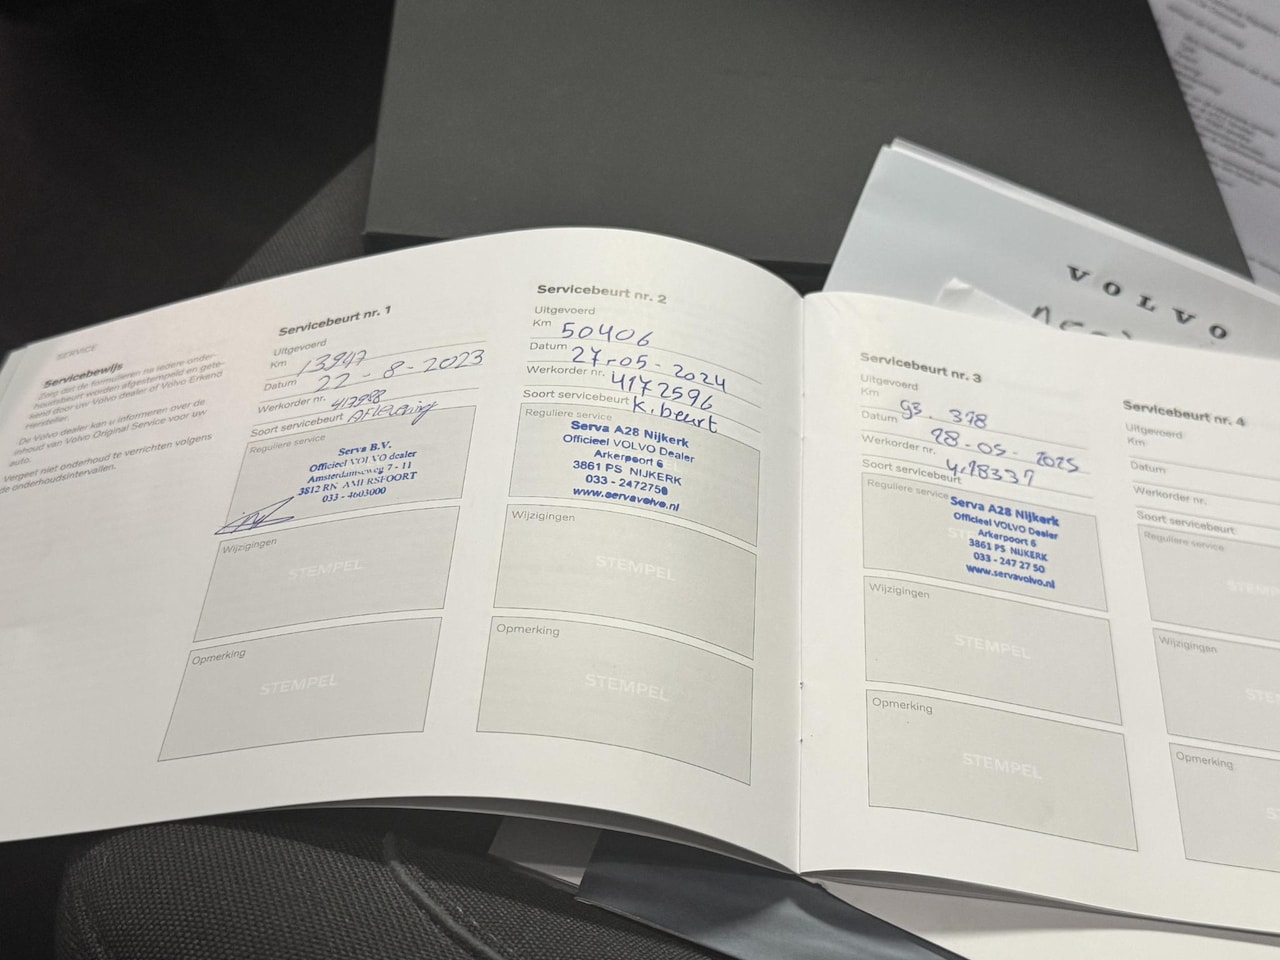 SERVICE
Servicebewijs
Zorg dat de formulieren na iedere onder-
houdsbeurt worden afgestempeld en gete-
kend door uw Volvo dealer of Volvo Erkend
Hersteller.
De Volvo dealer kan u informeren over de
inhoud van Volvo Original Service voor uw
auto.
Vergeet niet onderhoud te verrichten volgens
de onderhoudsintervallen.
Servicebeurt nr. 1
Uitgevoerd
Km 13947
Datum 22-8-2023
Werkorder nr.
Soort servicebeurt Aflevering
Reguliere service
Serva B.V.
Officieel VOLVO dealer
Amsterdamseweg 7 - 11
3812 RN AMERSFOORT
033 - 4603000
Wijzigingen
STEMPEL
Opmerking
STEMPEL
Servicebeurt nr. 2
Uitgevoerd
Km 50406
Datum 27-05-2024
Werkorder nr. 4172596
Soort servicebeurt K. beurt
Reguliere service
Serva A28 Nijkerk
Officieel VOLVO Dealer
Arkerpoort 6
3861 PS NIJKERK
033 - 2472750
www.servavolvo.nl
Wijzigingen
STEMPEL
Opmerking
STEMPEL
Servicebeurt nr. 3
Uitgevoerd
Km 93.378
Datum 28-05-2025
Werkorder nr.
Soort servicebeurt
Reguliere service
Serva A28 Nijkerk
Officieel VOLVO Dealer
Arkerpoort 6
3861 PS NIJKERK
033 - 247 27 50
www.servavolvo.nl
Wijzigingen
STEMPEL
Opmerking
STEMPEL
Servicebeurt nr. 4
Uitgevoerd
Km
Datum
Werkorder nr.
Soort servicebeurt
Reguliere service
Wijzigingen
Opmerking
VOLVO